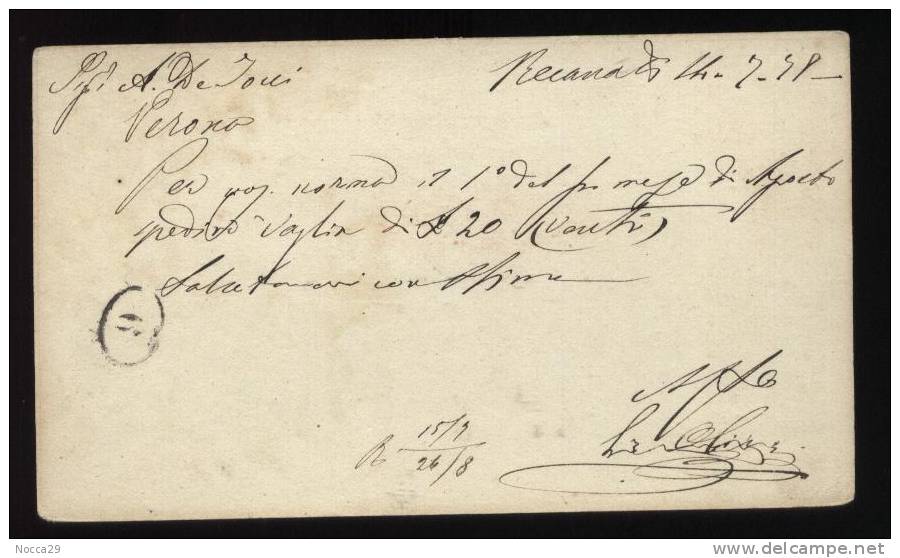 Recanati 14-7-78
A. De
Verona
Per norma il 1° del pr mese di Agosto
spedirò Vaglia di £ 20 (venti)
Salutandovi con Stima
15/7
R
26/8
Nocca29
delcampe.net